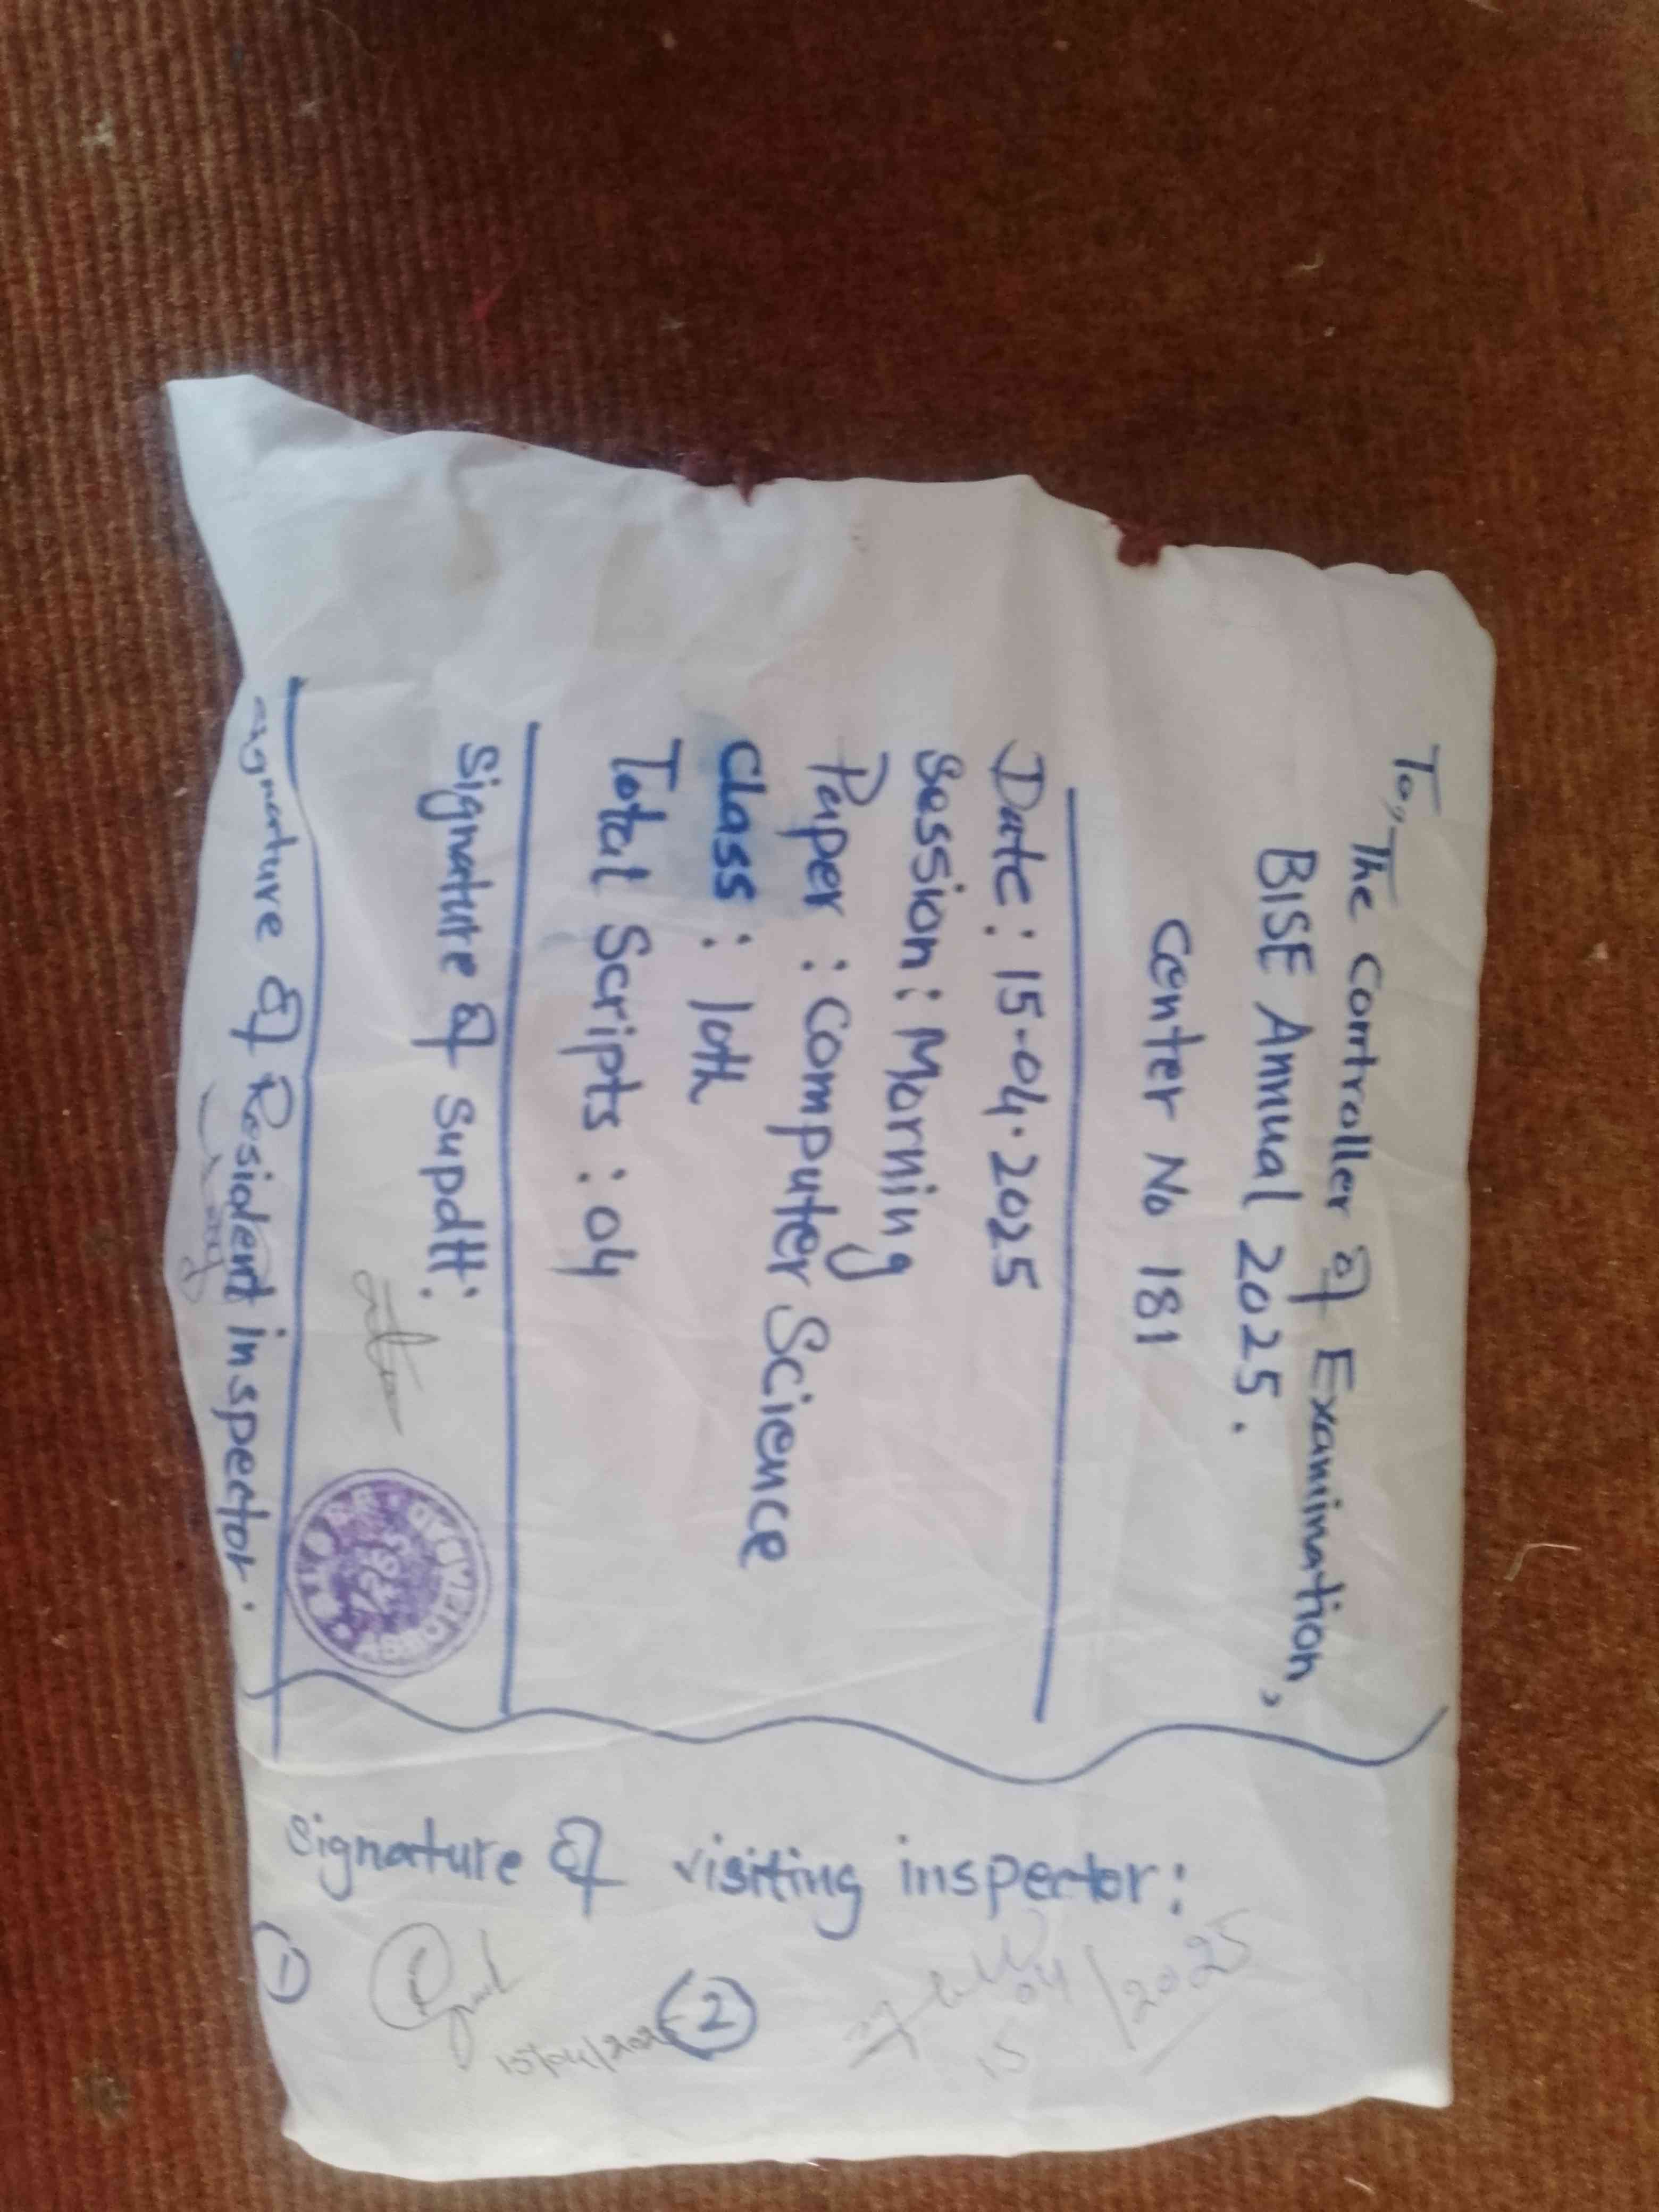 To, The Controller of Examination,
BISE Annual 2025.
Center No 181
Date : 15-04-2025
Session : Morning
Paper : Computer Science
Class : 10th
Total Scripts : 04
Signature of Supdtt:
Signature of Resident inspector.
Signature of visiting inspector:
1
15/04/2025
2
15/04/2025